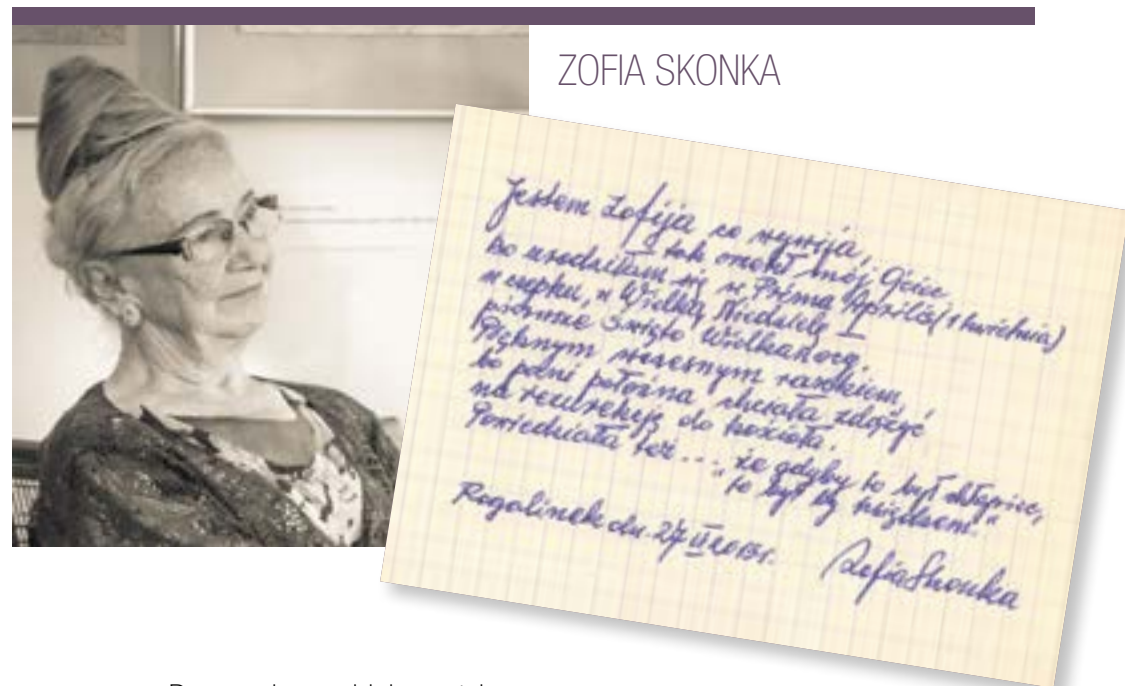 ZOFIA SKONKA
Jestem Zofija co wywija,
tak orzekł mój Ociec
bo urodziłam się w Prima Aprilis (1 kwietnia)
w czepku, w Wielką Niedzielę I
pierwsze Święto Wielkanocy,
Pięknym wczesnym rankiem,
bo pani położna chciała zdążyć
na rezurekcję do kościoła.
Powiedziała też... „że gdyby to był chłopiec,
to był by księdzem."
Rogalinek dn. 27
Zofia Skonka